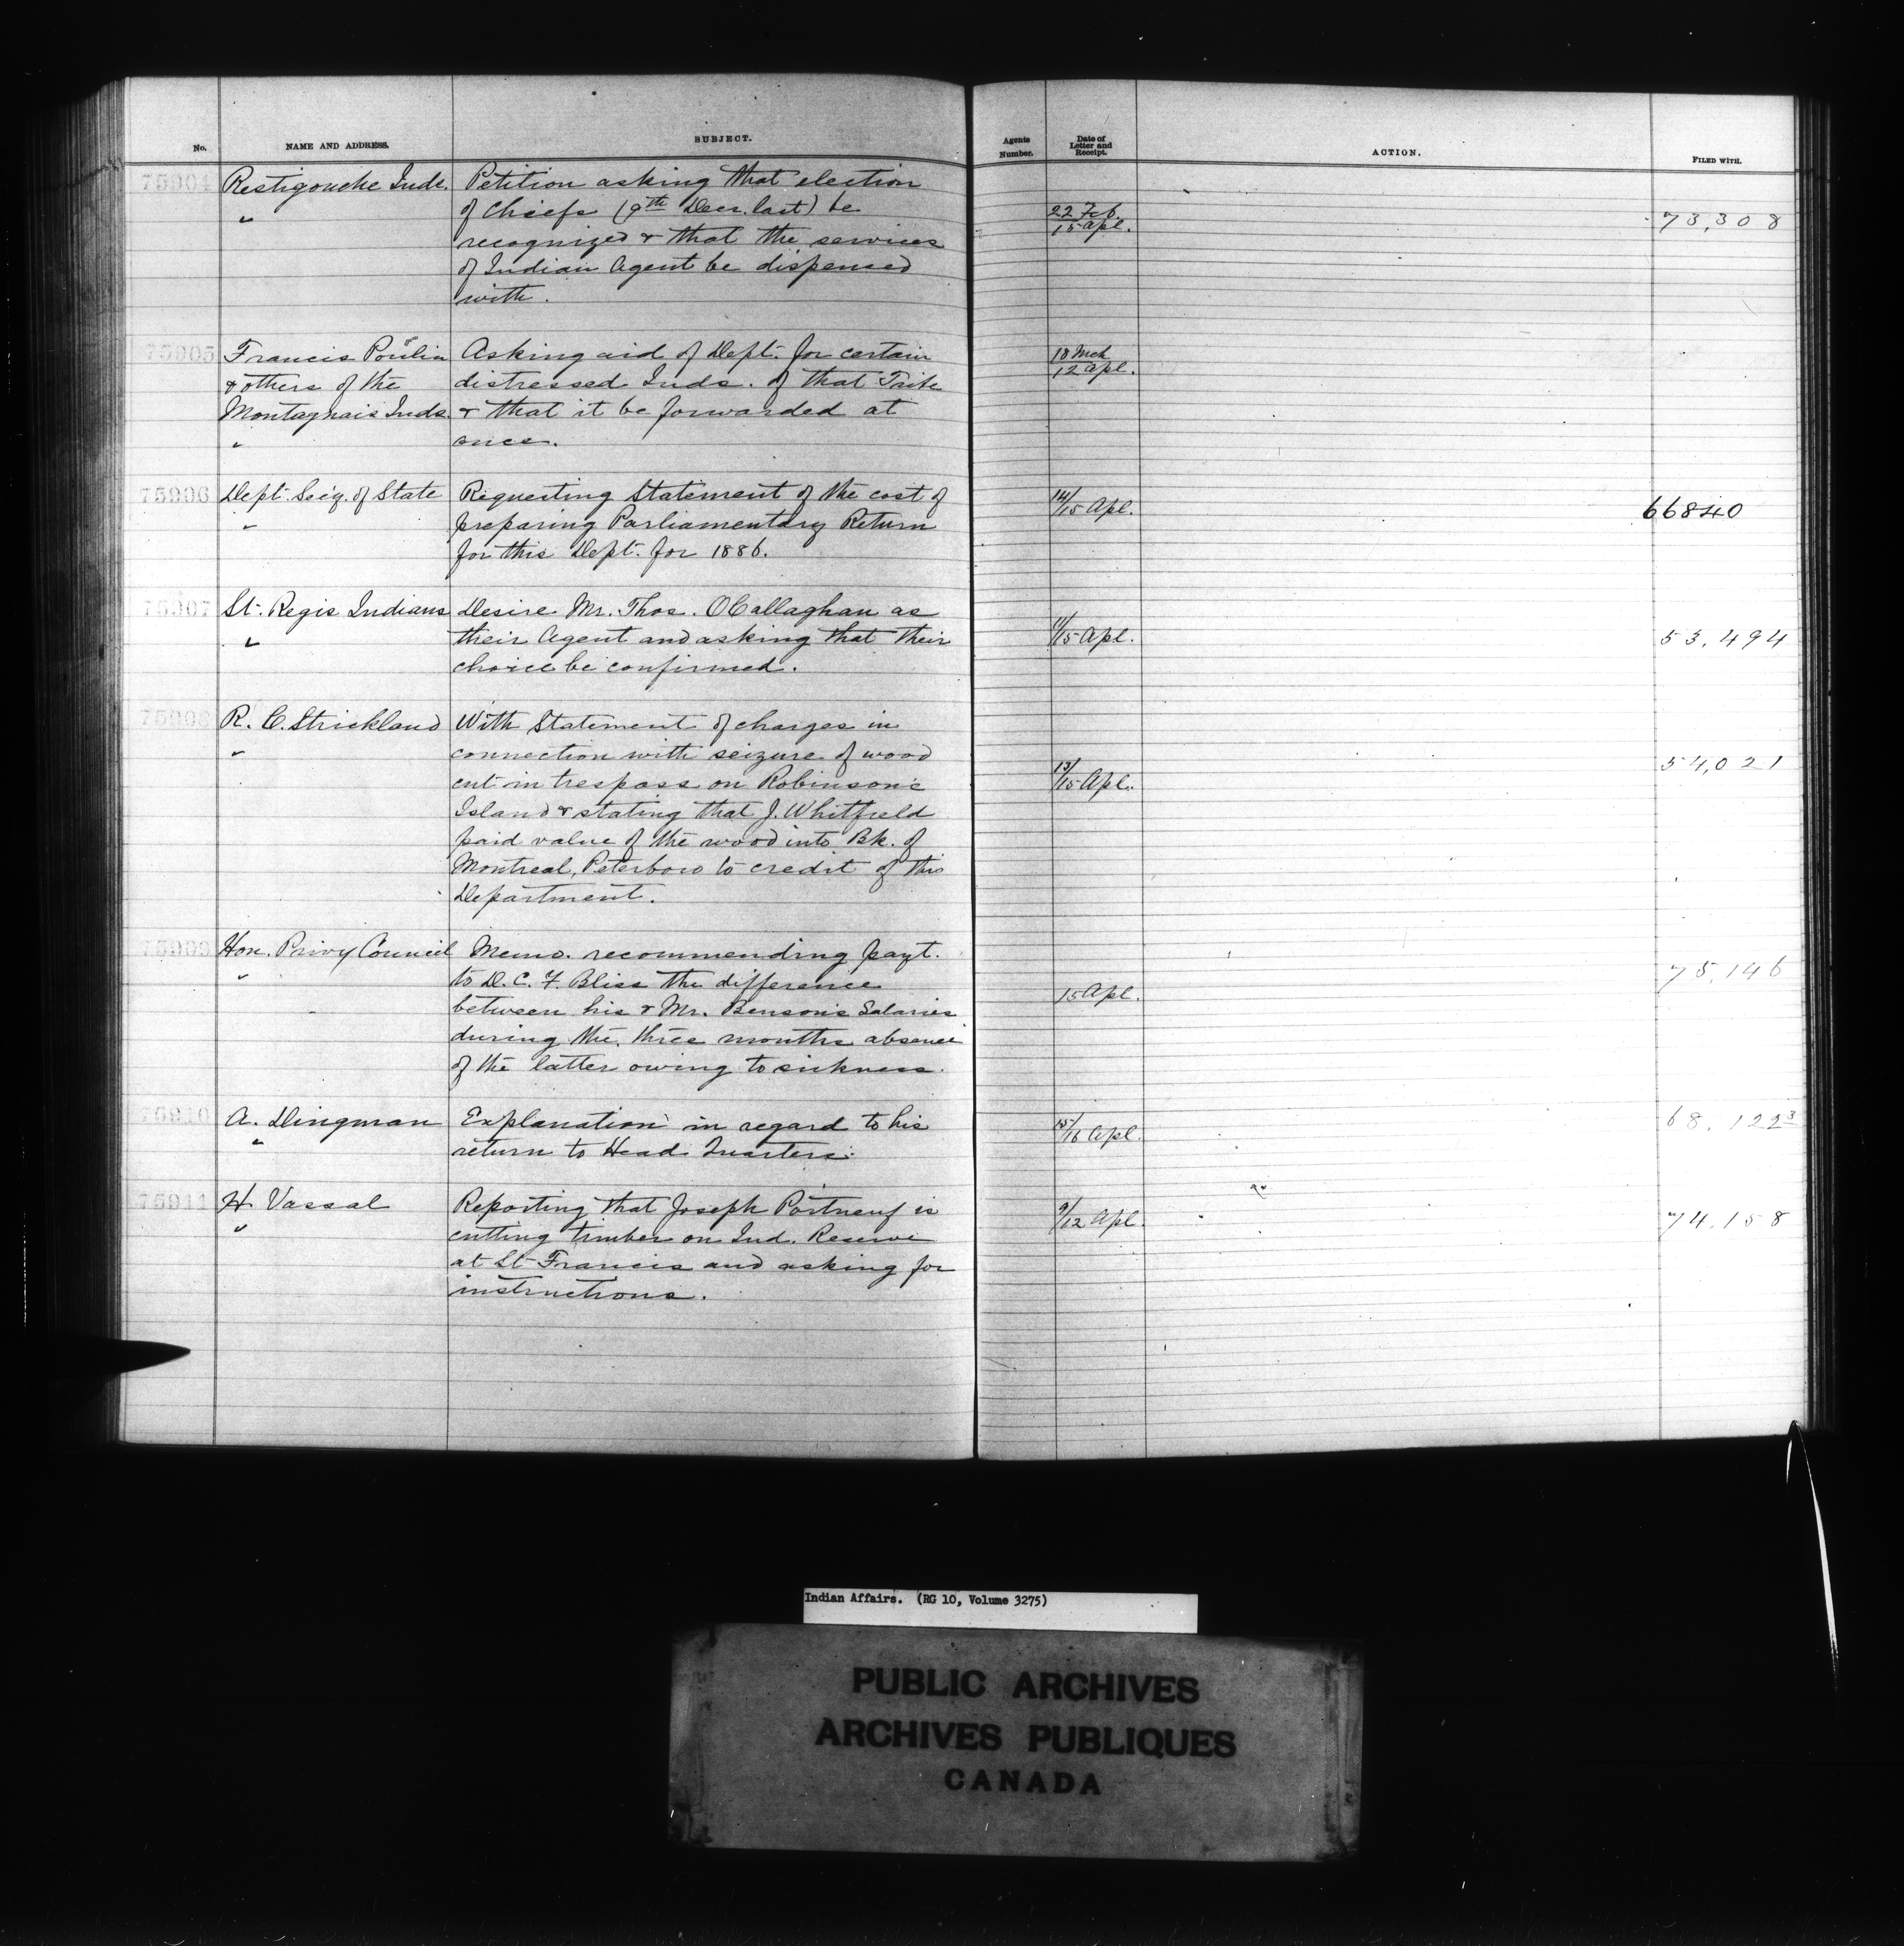 No. NAME AND ADDRESS. SUBJECT. Agents Number. Date of Letter and Receipt. ACTION. FILED WITH.
75904 Restigouche Inds. Petition asking that election
" of Chiefs (9th Decr. last) be 22 Feb. / 15 Apl. 73,308
recognized & that the services
of Indian Agent be dispensed
with.
75905 Francis Poulin Asking aid of Dept. for certain 18 Mch / 12 Apl.
& others of the distressed Inds. of that Tribe
Montagnais Inds. & that it be forwarded at
" once.
75906 Dept. Secy. of State Requesting Statement of the cost of 14/15 Apl. 66840
" preparing Parliamentary Return
for this Dept. for 1886.
75907 St. Regis Indians Desire Mr. Thos. O'Callaghan as
" their Agent and asking that their 11/15 Apl. 53,494
choice be confirmed.
75908 R. C. Strickland With Statement of charges in
" connection with seizure of wood 54,021
cut in trespass on Robinson's 13/15 Apl.
Island & stating that J. Whitfield
paid value of the wood into Bk. of
Montreal, Peterboro to credit of this
Department.
75909 Hon. Privy Council Memo. recommending payt.
" to D. C. F. Bliss the difference 15 Apl. 75,146
between his & Mr. Benson's Salaries
during the three months absence
of the latter owing to sickness.
75910 A. Dingman Explanation in regard to his 15/16 Apl. 68,122 3
" return to Head Quarters.
75911 H. Vassal Reporting that Joseph Portneuf is 9/12 Apl. 74,158
" cutting timber on Ind. Reserve
at St Francis and asking for
instructions.
Indian Affairs. (RG 10, Volume 3275)
PUBLIC ARCHIVES
ARCHIVES PUBLIQUES
CANADA